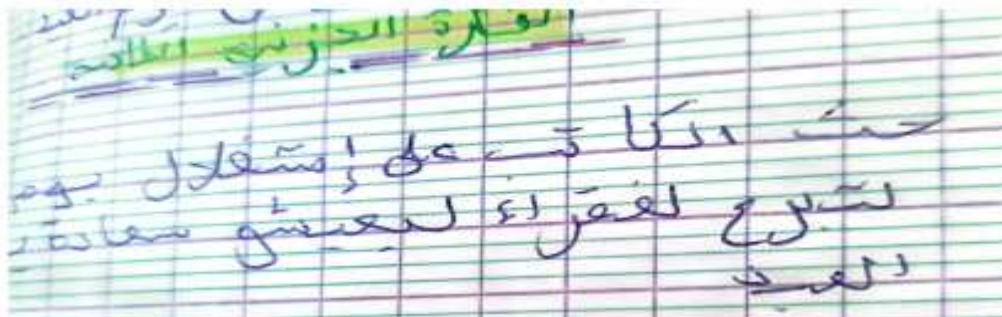 الفكرة الجزئية الثالثة
حث الكاتب على إستغلال يوم
لتبرع لفقراء ليعيشو سعادة
العيد